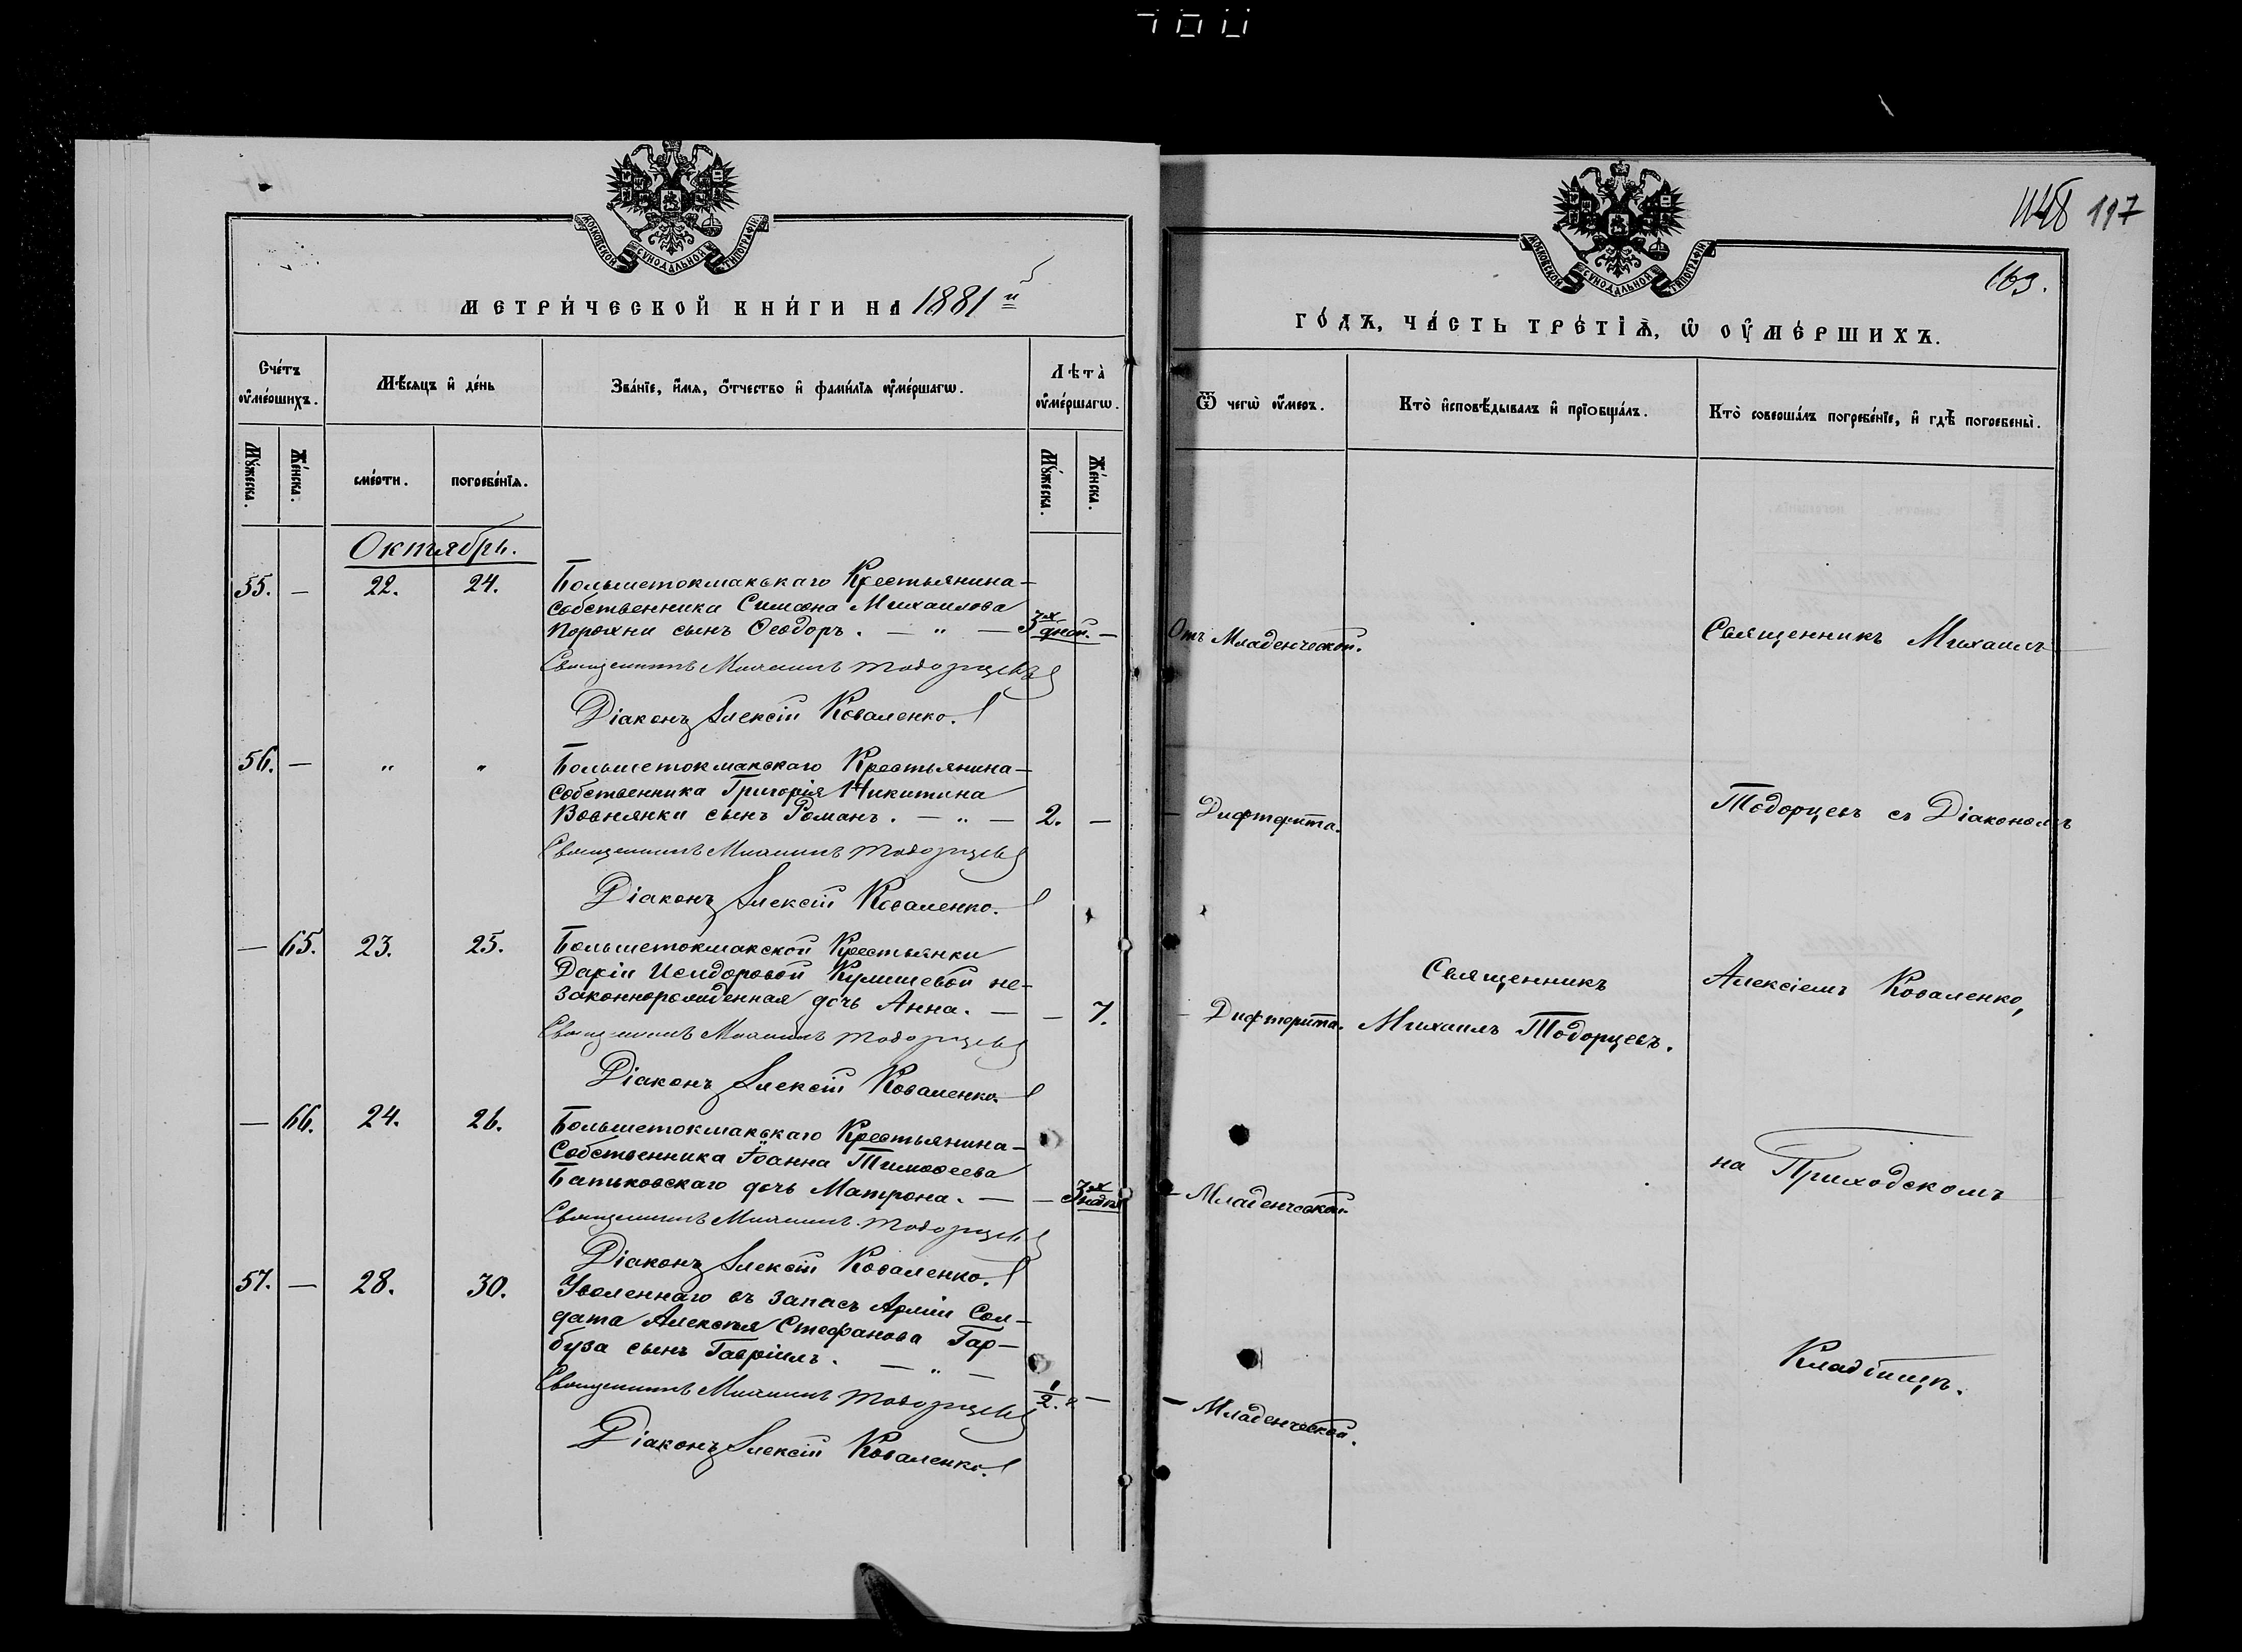 МОСКОВСКОЙ СѴНОДАЛЬНОЙ ТИПОГРАФІИ
МЕТРИ́ЧЕСКОЙ КНИ́ГИ НА 1881 й
Сче́тъ ᲂу҆ме́ршихъ.
Мѣ́сяцъ и҆ де́нь
Зва́нїе, и҆́мя, ѻ҆́тчество и҆ фами́лїя ᲂу҆ме́ршагѡ.
Лѣта̀ ᲂу҆ме́ршагѡ.
Мꙋ́жеска.
Же́нска.
сме́рти.
погребе́нїя.
Мꙋ́жеска.
Же́нска.
Октябрь.
55. — 22. 24. Большетокмакскаго Крестьянина-
собственника Симеона Михаилова
Порохни сынъ Ѳеодоръ. — " — 3х дней. —
Священникъ Михаилъ Тодорцевъ
Діаконъ Алексій Коваленко.
56. — " " Большетокмакскаго Крестьянина-
собственника Григорія Никитина
Вовнянки сынъ Романъ. — " — 2. —
Священникъ Михаилъ Тодорцевъ
Діаконъ Алексій Коваленко.
— 65. 23. 25. Большетокмакской Крестьянки
Даріи Исидоровой Кулишевой не-
законнорожденная дочь Анна. — — 7.
Священникъ Михаилъ Тодорцевъ
Діаконъ Алексій Коваленко.
— 66. 24. 26. Большетокмакскаго Крестьянина-
собственника Іоанна Тимоѳеева
Батьковскаго дочь Матрона. — — 3х
Священникъ Михаилъ Тодорцевъ
Діаконъ Алексій Коваленко.
57. — 28. 30. Уволеннаго въ запасъ Арміи Сол-
дата Алексѣя Стефанова Гар-
буза сынъ Гавріилъ. — " —
Священникъ Михаилъ Тодорцевъ 1/2. —
Діаконъ Алексій Коваленко.
117
163.
МОСКОВСКОЙ СѴНОДАЛЬНОЙ ТИПОГРАФІИ
ГО́ДЪ, ЧА́СТЬ ТРЕ́ТЇѦ, Ѡ ОУ҆МЕ́РШИХЪ.
Ѿ чегѡ̀ ᲂу҆́меръ.
Кто̀ и҆сповѣ́дывалъ и҆ прїобща́лъ.
Кто̀ соверша́лъ погребе́нїе, и҆ гдѣ̀ погребены̀.
Отъ Младенческой.
Священникъ Михаилъ
— Дифтерита.
Тодорцевъ съ Діакономъ
— Дифтерита.
Священникъ
Михаилъ Тодорцевъ.
Алексіемъ Коваленко,
— Младенческой.
на Приходскомъ
— Младенческой.
Кладбищѣ.